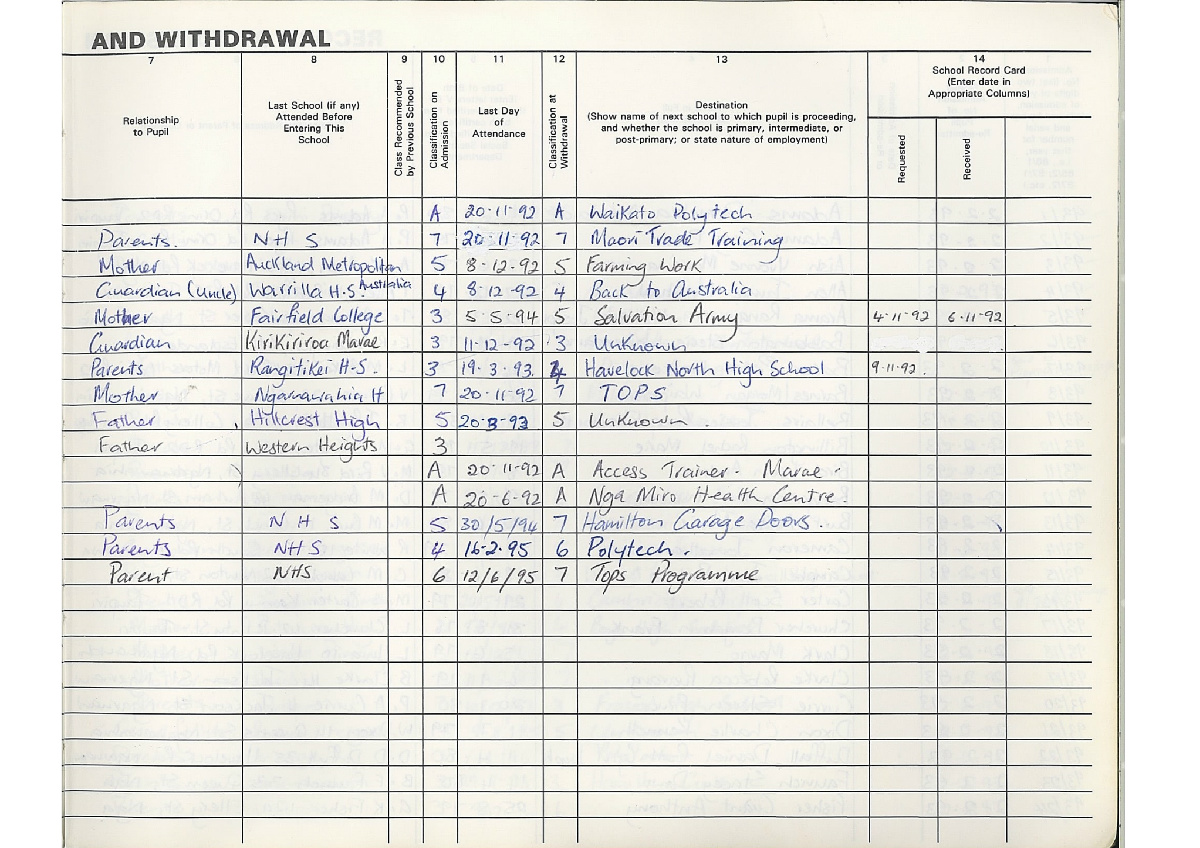 AND WITHDRAWAL
7 8 9 10 11 12 13 14
Relationship to Pupil
Last School (if any) Attended Before Entering This School
Class Recommended by Previous School
Classification on Admission
Last Day of Attendance
Classification at Withdrawal
Destination
(Show name of next school to which pupil is proceeding, and whether the school is primary, intermediate, or post-primary; or state nature of employment)
School Record Card (Enter date in Appropriate Columns)
Requested
Received
A 20-11-92 A Waikato Polytech
Parents. N H S 7 20-11-92 7 Maori Trade Training
Mother Auckland Metropolitan 5 8-12-92 5 Farming Work
Guardian (Uncle) Warrilla H.S. Australia 4 8-12-92 4 Back to Australia
Mother Fairfield College 3 5-5-94 5 Salvation Army 4-11-92 6-11-92
Guardian KiriKiriroa Marae 3 11-12-92 3 UnKnown
Parents Rangitikei H.S. 3 19.3.93. 4 Havelock North High School 9-11-92.
Mother Ngaruawahia H 7 20-11-92 7 TOPS
Father Hillcrest High 5 20-8-93 5 UnKnown.
Father Western Heights 3
A 20-11-92 A Access Trainer- Marae.
A 20-6-92 A Nga Miro Health Centre.
Parents N H S 5 30/5/94 7 Hamilton Garage Doors.
Parents NHS 4 16-2-95 6 Polytech.
Parent NHS 6 12/6/95 7 Tops Programme